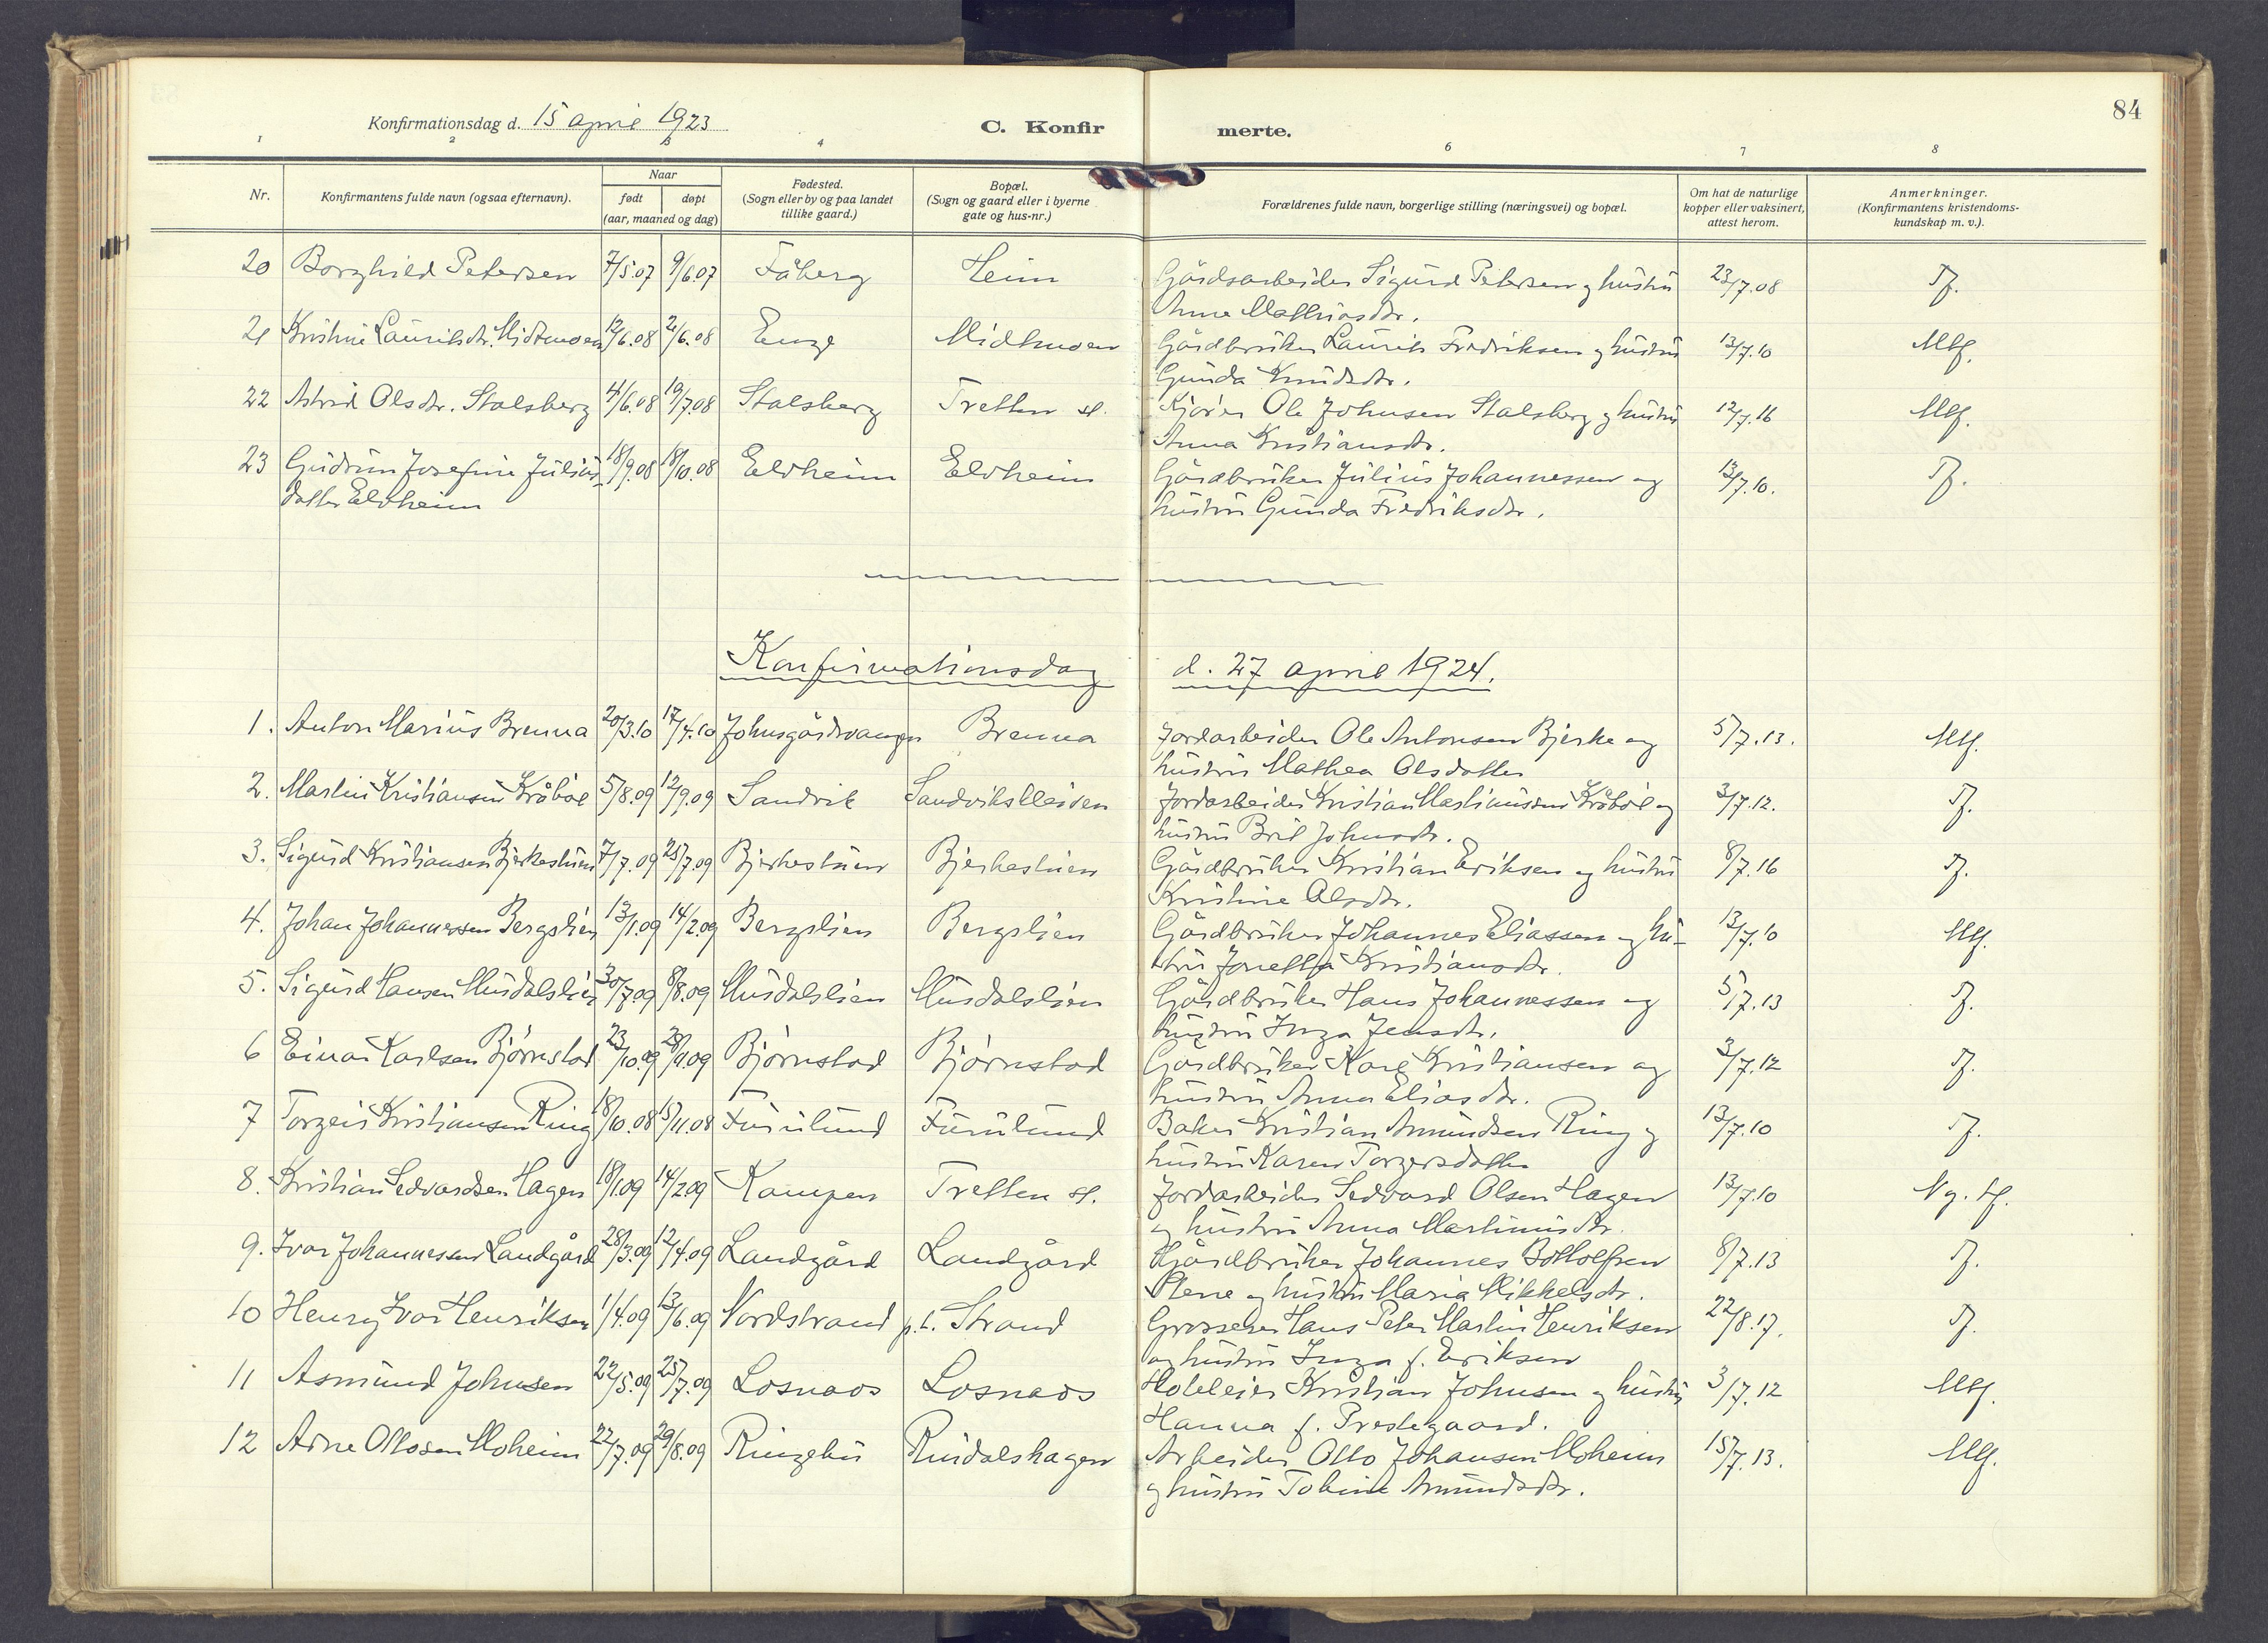 84
Konfirmationsdag d. 15 april 1923
C. Konfir merte.
1 2 3 4 6 7 8
Nr. Konfirmantens fulde navn (ogsaa efternavn). Naar født døpt (aar, maaned og dag) Fødested. (Sogn eller by og paa landet tillike gaard.) Bopæl. (Sogn og gaard eller i byerne gate og hus-nr.) Forældrenes fulde navn, borgerlige stilling (næringsvei) og bopæl. Om hat de naturlige kopper eller vaksinert, attest herom. Anmerkninger. (Konfirmantens kristendoms- kundskap m. v.).
20 Borghild Petersen 7/5.07 9/6.07 Fåberg Heim Gårdsarbeider Sigurd Petersen og hustru 23/7.08
Anne Mathiasdtr.
21 Kristine Lauritsdtr. Midtmoen 12/6.08 2/6.08 Enge Midtmoen Gårdbruker Laurits Fredriksen og hustru 13/7.10 Mtf.
Gunda Knudsdtr.
22 Astrid Olsdtr. Stalsberg 4/6.08 19/7.08 Stalsberg Tretten st. Kjører Ole Johnsen Stalsberg og hustru 12/7.16 Mtf.
Anna Kristiansdtr.
23 Gudrun Josefine Julius- 18/9.08 18/10.08 Eldheim Eldheim Gårdbruker Julius Johannessen og 13/7.10.
datter Eldheim hustru Gunda Fredriksdtr.
Konfirmationsdag d. 27 april 1924.
1. Anton Marius Brenna 20/3.10 17/4.10 Johnsgårdvangen Brenna Jordarbeider Ole Antonsen Bjerke og 5/7.13. Mtf.
hustru Mathea Olsdatter
2. Martin Kristiansen Kråbøl 5/8.09 12/9.09 Sandvik Sandvikskleiven Jordarbeider Kristian Martinussen Kråbøl og 3/7.12. Tf.
hustru Brit Johnsdtr.
3. Sigurd Kristiansen Bjerkestuen 7/7.09 25/7.09 Bjerkestuen Bjerkestuen Gårdbruker Kristian Eriksen og hustru 8/7.16 Tf.
Kristine Olsdtr.
4. Johan Johannessen Bergslien 13/1.09 14/2.09 Bergslien Bergslien Gårdbruker Johannes Eliassen og hu- 13/7.10 Mtf.
stru Jonetta Kristiansdtr.
5. Sigurd Hansen Musdalslien 30/7.09 8/8.09 Musdalslien Musdalslien Gårdbruker Hans Johannessen og 5/7.13 Tf.
hustru Inga Jensdtr.
6 Einar Karlsen Bjørnstad 23/10.09 28/11.09 Bjørnstad Bjørnstad Gårdbruker Karl Kristiansen og 3/7.12 Tf.
hustru Anna Eliasdtr.
7 Torgeir Kristiansen Ring 18/10.08 15/11.08 Furulund Furulund Baker Kristian Amundsen Ring og 13/7.10 Tf.
hustru Karen Torgersdatter
8. Kristian Sedvardsen Hagen 18/1.09 14/2.09 Kampen Tretten st. Jordarbeider Sedvard Olsen Hagen 13/7.10 Ng. tf.
og hustru Anna Martinusdtr.
9. Ivar Johannessen Landgård 28/3.09 12/4.09 Landgård Landgård Gårdbruker Johannes Bottolfsen 8/7.13 Tf.
og hustru Maria Mikkelsdtr.
10 Henry Ivar Henriksen 1/4.09 13/6.09 Nordstrand p.t. Strand Grosserer Hans Peter Martin Henriksen 22/8.17. Tf.
og hustru Inga f. Eriksen
11 Asmund Johnsen 22/5.09 25/7.09 Losnaos Losnaos Hoteleier Kristian Johnsen og hustru 3/7.12 Mtf.
Hanna f. Prestegaard.
12 Arne Ottosen Moheim 22/7.09 29/8.09 Ringebu Rindalshagen Arbeider Otto Johansen Moheim 15/7.13. Mtf.
og hustru Toline Amundsdtr.